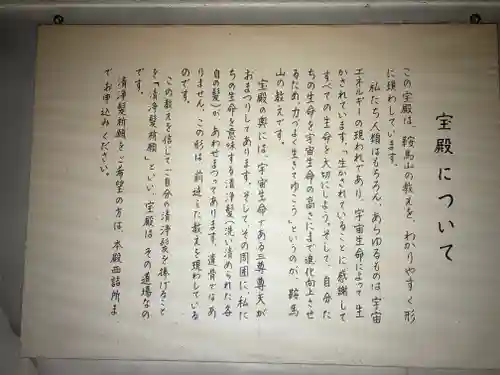 宝殿について
この宝殿は、鞍馬山の教えを、わかりやすく形
に現わしています。
私たち人類はもちろん、あらゆるものは宇宙
エネルギーの現われであり、宇宙生命によって生
かされています。「生かされていることに感謝して
すべての生命を大切にしよう。そして、自分た
ちの生命を宇宙生命の高さにまで進化向上させ
るため、力づよく生きてゆこう」というのが、鞍馬
山の教えです。
宝殿の奥には、宇宙生命である三尊尊天が
おまつりしてあります。そして、その周囲に、私た
ちの生命を意味する清浄髪(洗い清められた各
自の髪)が、あわせまつってあります。遺骨ではあ
りません。この形は、前述した教えを現わしている
のです。
この教えを信じて、ご自分の清浄髪を捧げること
を「清浄髪祈願」といい、宝殿は、その道場なの
です。
清浄髪祈願をご希望の方は、本殿西詰所ま
でお申込みください。